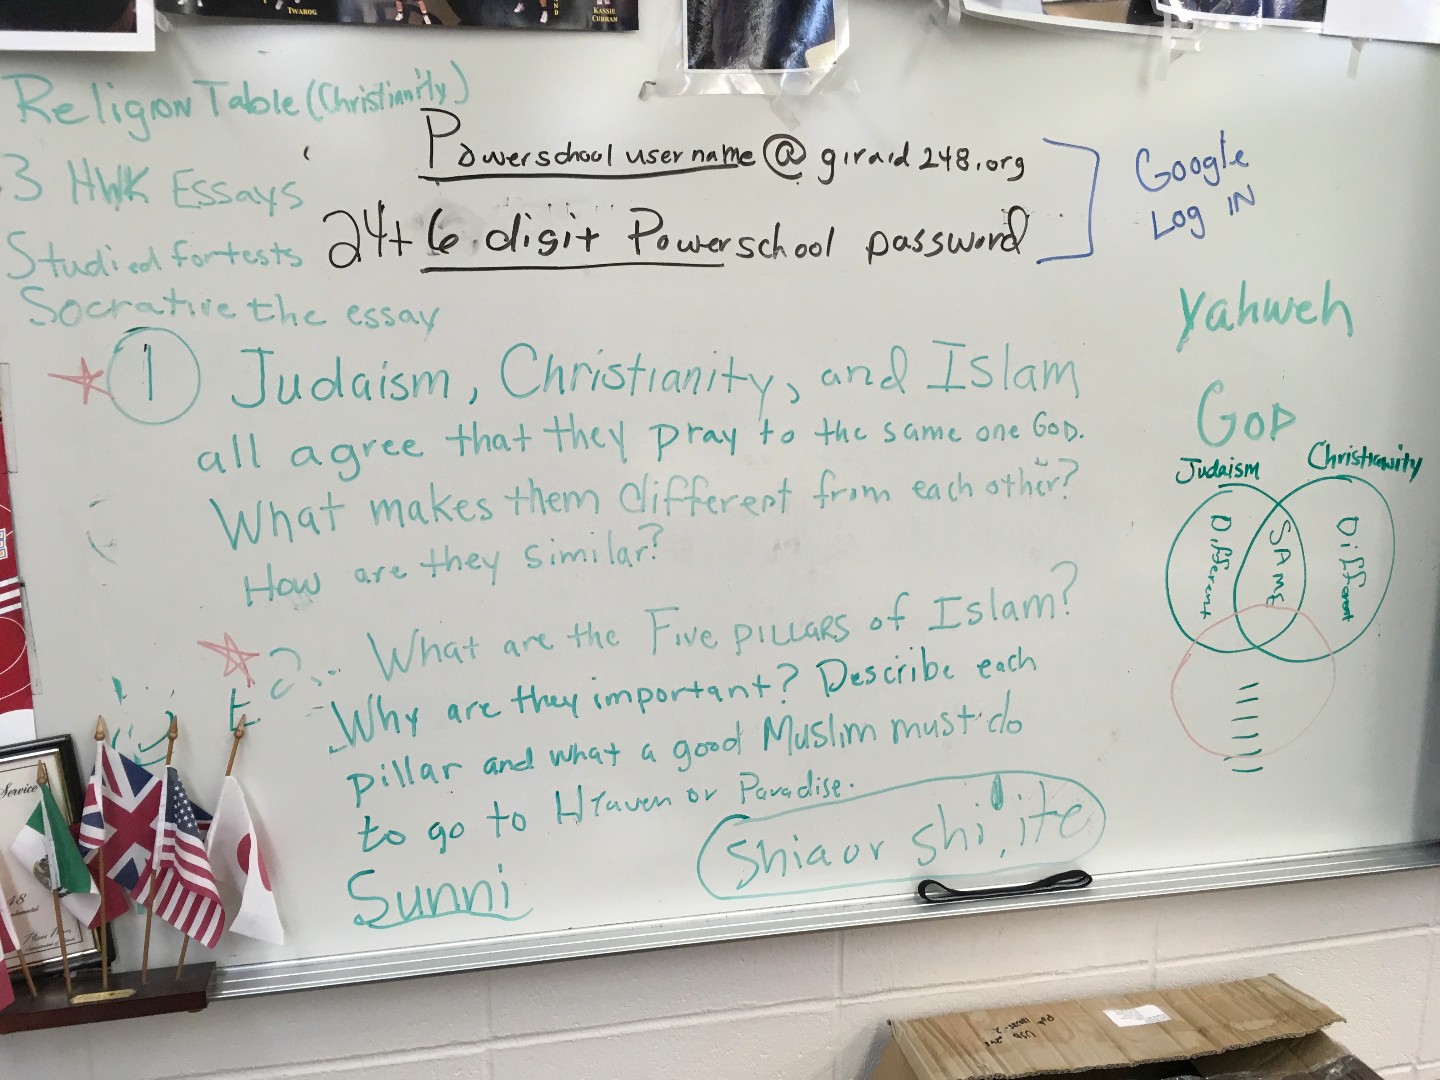 TWAROG
KASSIE
CURRAN
Religion Table (Christianity)
3 HWK Essays
Studied for tests
Socrative the essay
Powerschool username@giraid248.org
24+6 digit Powerschool password
Google
LOG IN
Yahweh
GOD
1 Judaism, Christianity, and Islam
all agree that they pray to the same one GOD.
What makes them different from each other?
How are they similar?
2. What are the Five PILLARS of Islam?
Why are they important? Describe each
pillar and what a good Muslim must do
to go to Heaven or Paradise.
Sunni
Shia or shi'ite
Judaism
Christianity
Different
SAME
Different
Service